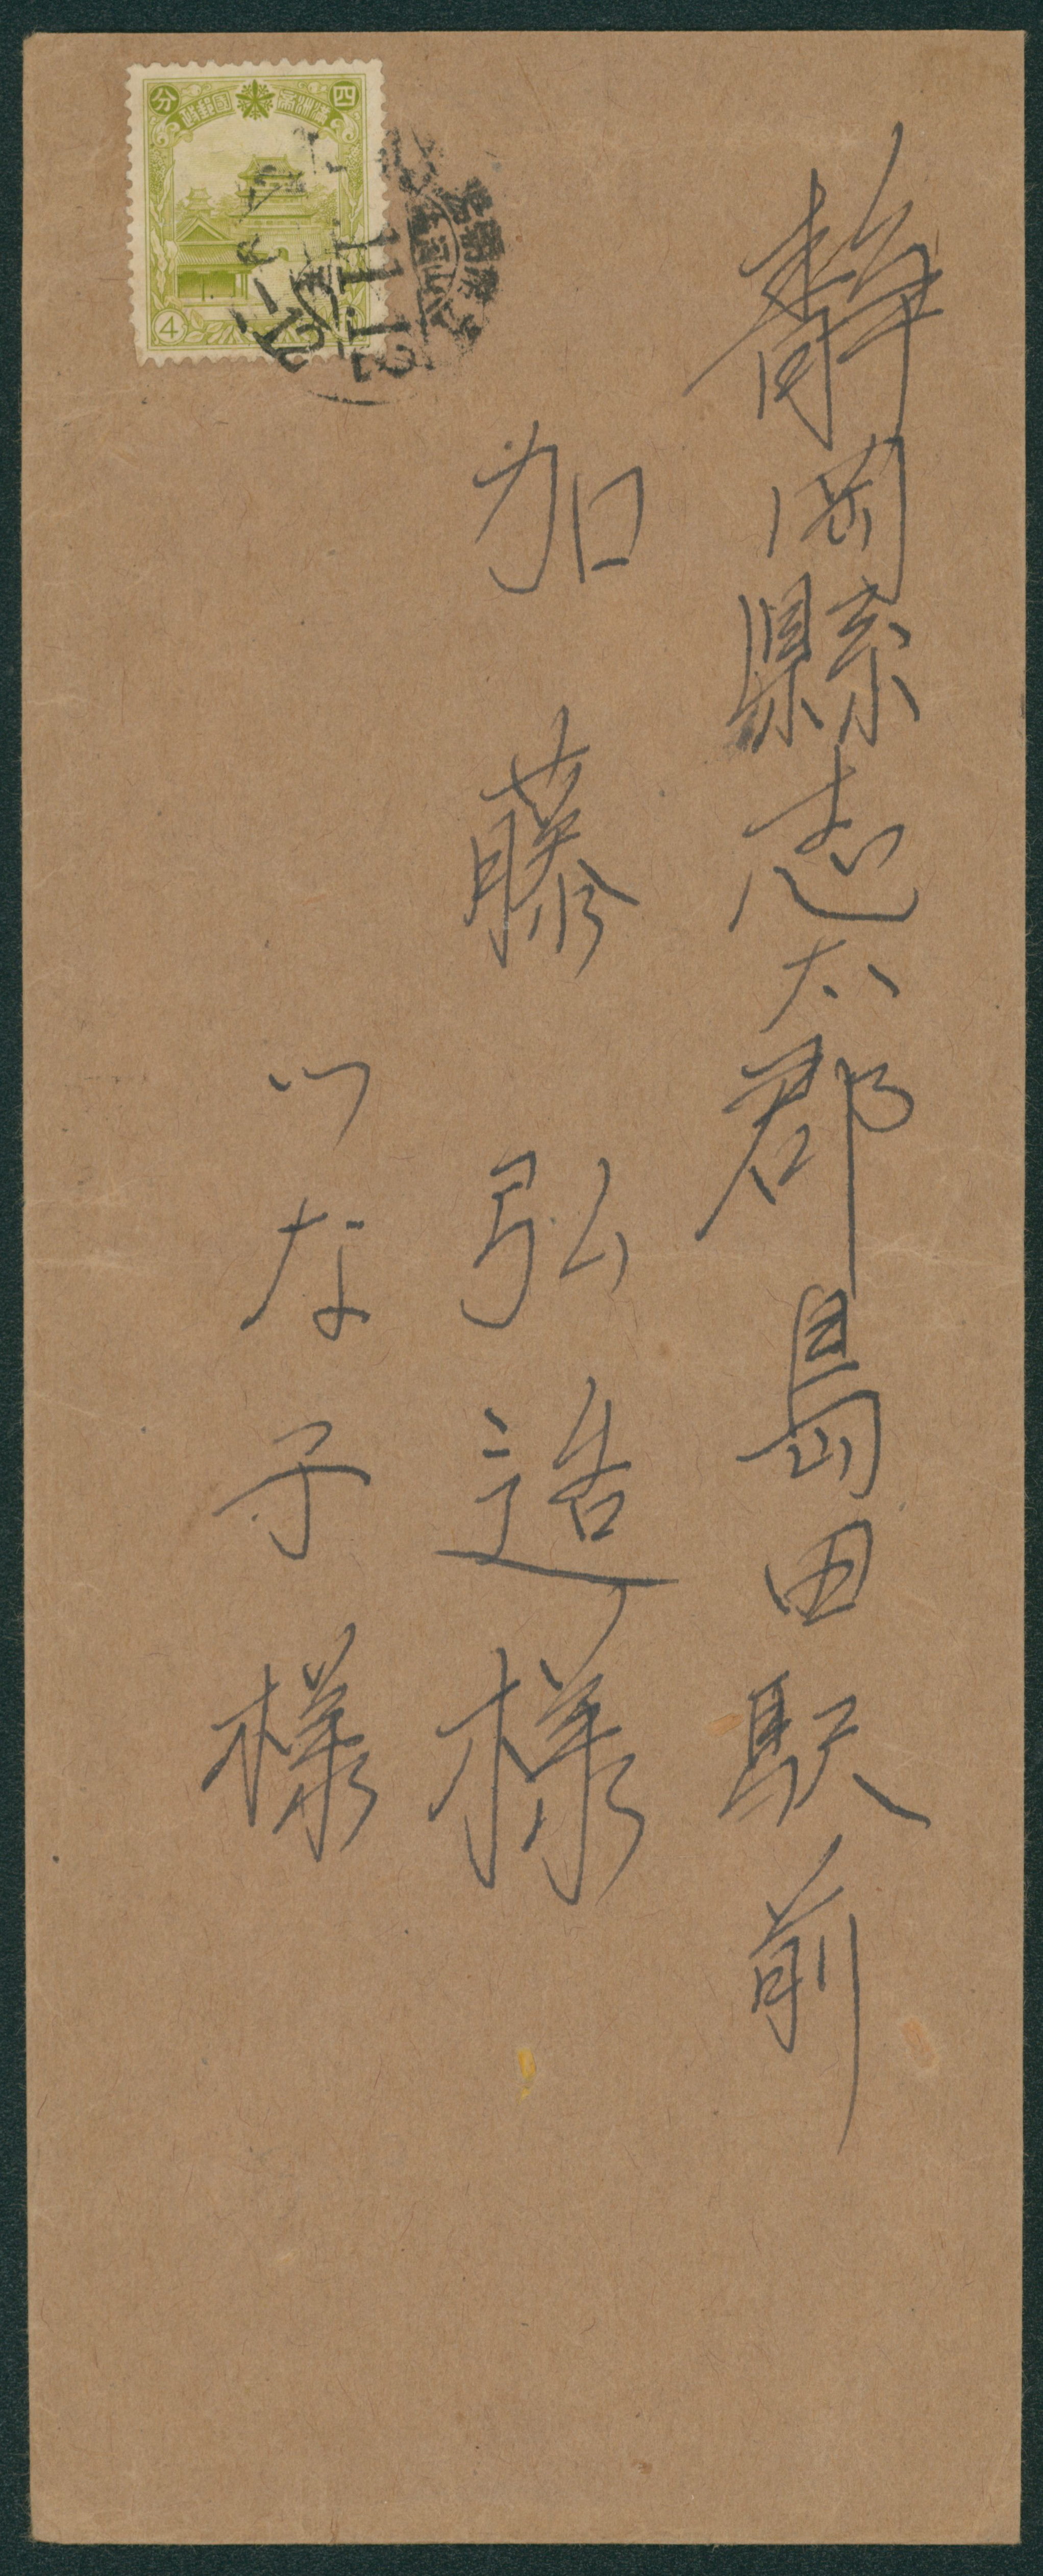 静岡縣志太郡島田駅前
加藤弘造様
つな子様
四分
滿洲帝國郵政
4